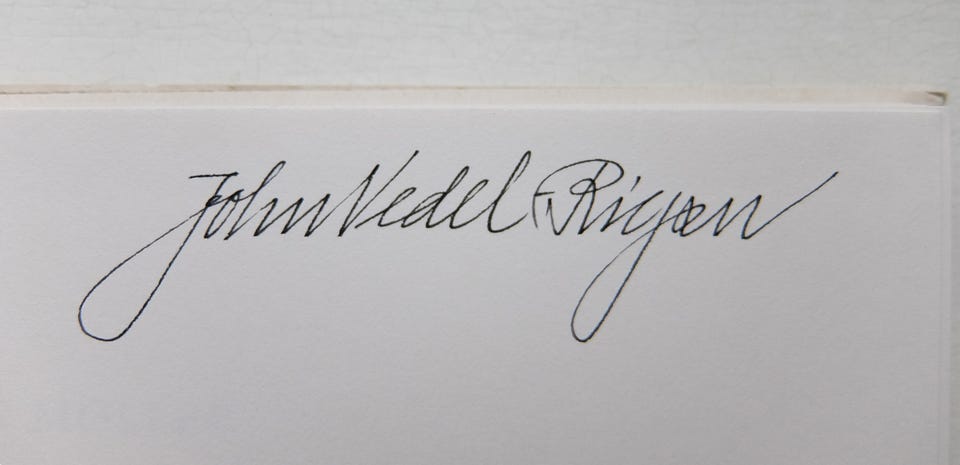 John Vedel F. Rigæn